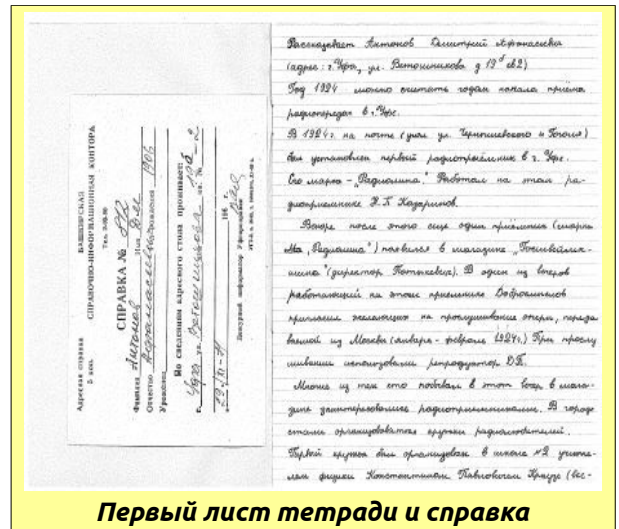 Адресная справка
5 коп.
БАШКИРСКАЯ
СПРАВОЧНО-ИНФОРМАЦИОННАЯ КОНТОРА
СПРАВКА №
Фамилия Антонов Имя Дм.
Отчество Афанасьевич 1906
Уроженец
По сведениям адресного стола проживает:
г. Уфа ул. Ветошникова 19б - 2
Рассказывает Антонов Дмитрий Афанасьевич
(адрес: г. Уфа, ул. Ветошникова д 19б кв2)
Год 1924 можно считать годом начала приёма
радиопередач в г. Уфе.
В 1924 г. на почте (угол ул. Чернышевского и Гоголя)
был установлен первый радиоприёмник в г. Уфе.
Его марка - "Радиолина." Работал на этом ра-
диоприемнике Н.П. Казаринов.
Вскоре после этого еще один приёмник (марки
"Радиолина") появился в магазине "Госшвейма-
шина" (директор Потыкевич). В один из вечеров
работающий на этом приемнике
пригласил желающих на прослушивание оперы, переда
ваемой из Москвы (январь - февраль 1924г.) При прослу
шивании использовали репродуктор
Многие из тех кто побывал в этот вечер в мага-
зине заинтересовались радиоприемниками. В городе
стали организоваться кружки радиолюбителей.
Первый кружок был организован в школе №2 учите-
лем физики Константином Павловичем Краузе (вес-
Первый лист тетради и справка